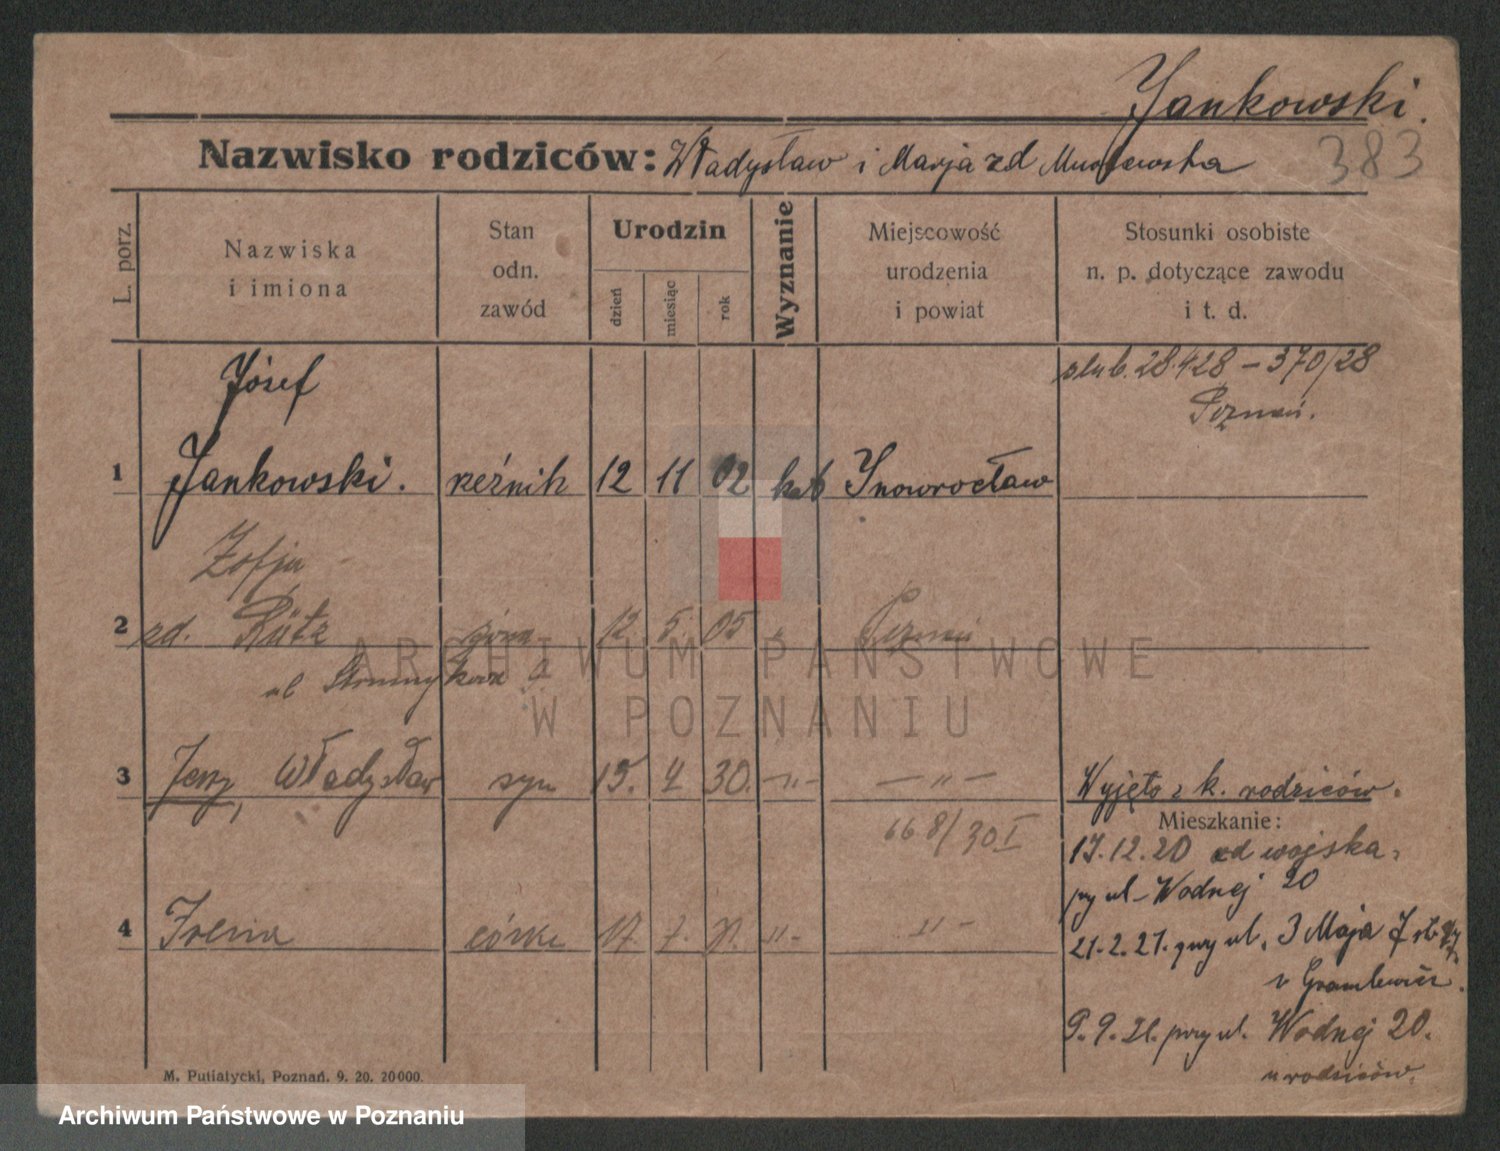 Jankowski.
383
Nazwisko rodziców: Władysław i Marja zd
L. porz.
Nazwiska
i imiona
Stan
odn.
zawód
Urodzin
dzień
miesiąc
rok
Wyznanie
Miejscowość
urodzenia
i powiat
Stosunki osobiste
n. p. dotyczące zawodu
i t. d.
ślub. 28.4.28 – 370/28
Poznań.
Józef
1 Jankowski. rzeźnik 12 11 02 kat Inowrocław
Zofja
2 zd. Rütz 12 5 05 " Poznań
ul
3 Jerzy, Władysław syn 15. 4 30. –"– –"–
Wyjęto z k. rodziców.
668/30 I
Mieszkanie:
17.12.20 od wojska,
przy ul. Wodnej 20
4 Irena córka 17. 7. 31. "– "–
21.2.21. przy ul. 3 Maja 7
9.9.21. przy ul. Wodnej 20.
u rodziców.
M. Putiatycki, Poznań. 9. 20. 20000.
ARCHIWUM PAŃSTWOWE
W POZNANIU
Archiwum Państwowe w Poznaniu